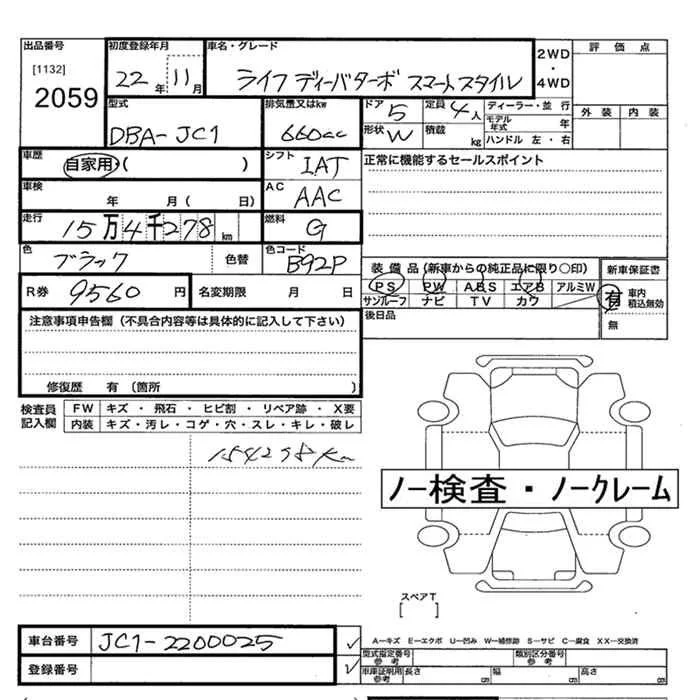 出品番号 初度登録年月 車名・グレード 2WD・4WD 評価点
[1132] 22年 11月 ライフ ディーバターボ スマートスタイル
2059 外装 内装
型式 排気量又はkw ドア 5 定員 4人 ディーラー・並行
DBA-JC1 660cc 形状 W 積載 kg モデル年式 年
ハンドル 左・右
車歴 自家用・( ) シフト IAT 正常に機能するセールスポイント
車検 年 月( 日) AC AAC
走行 15万4千278km 燃料 G
色 ブラック 色替 色コード B92P
装備品(新車からの純正品に限り○印) 新車保証書
R券 9560円 名変期限 月 日 PS PW ABS エアB アルミW 有 車内積込無効
サンルーフ ナビ TV カワ
注意事項申告欄(不具合内容等は具体的に記入して下さい) 後日品 無
修復歴 有(箇所 )
検査員記入欄 FW キズ・飛石・ヒビ割・リペア跡・X要
内装 キズ・汚レ・コゲ・穴・スレ・キレ・破レ
ノー検査・ノークレーム
スペアT
[ ]
車台番号 JC1-2200025 A-キズ E-エクボ U-凹み W-補修跡 S-サビ C-腐食 XX-交換済
型式指定番号 参考 類別区分番号 参考
登録番号 車庫証明記載 参考 長さ 幅 高さ